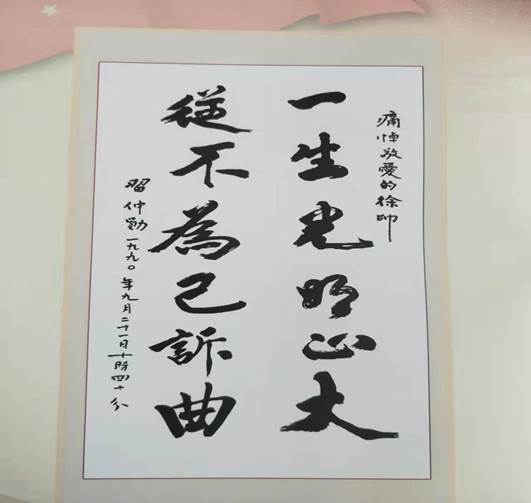 痛悼敬爱的徐帅
一生光明正大
從不為己訴曲
習仲勛一九九〇年九月二十一日十時四十分